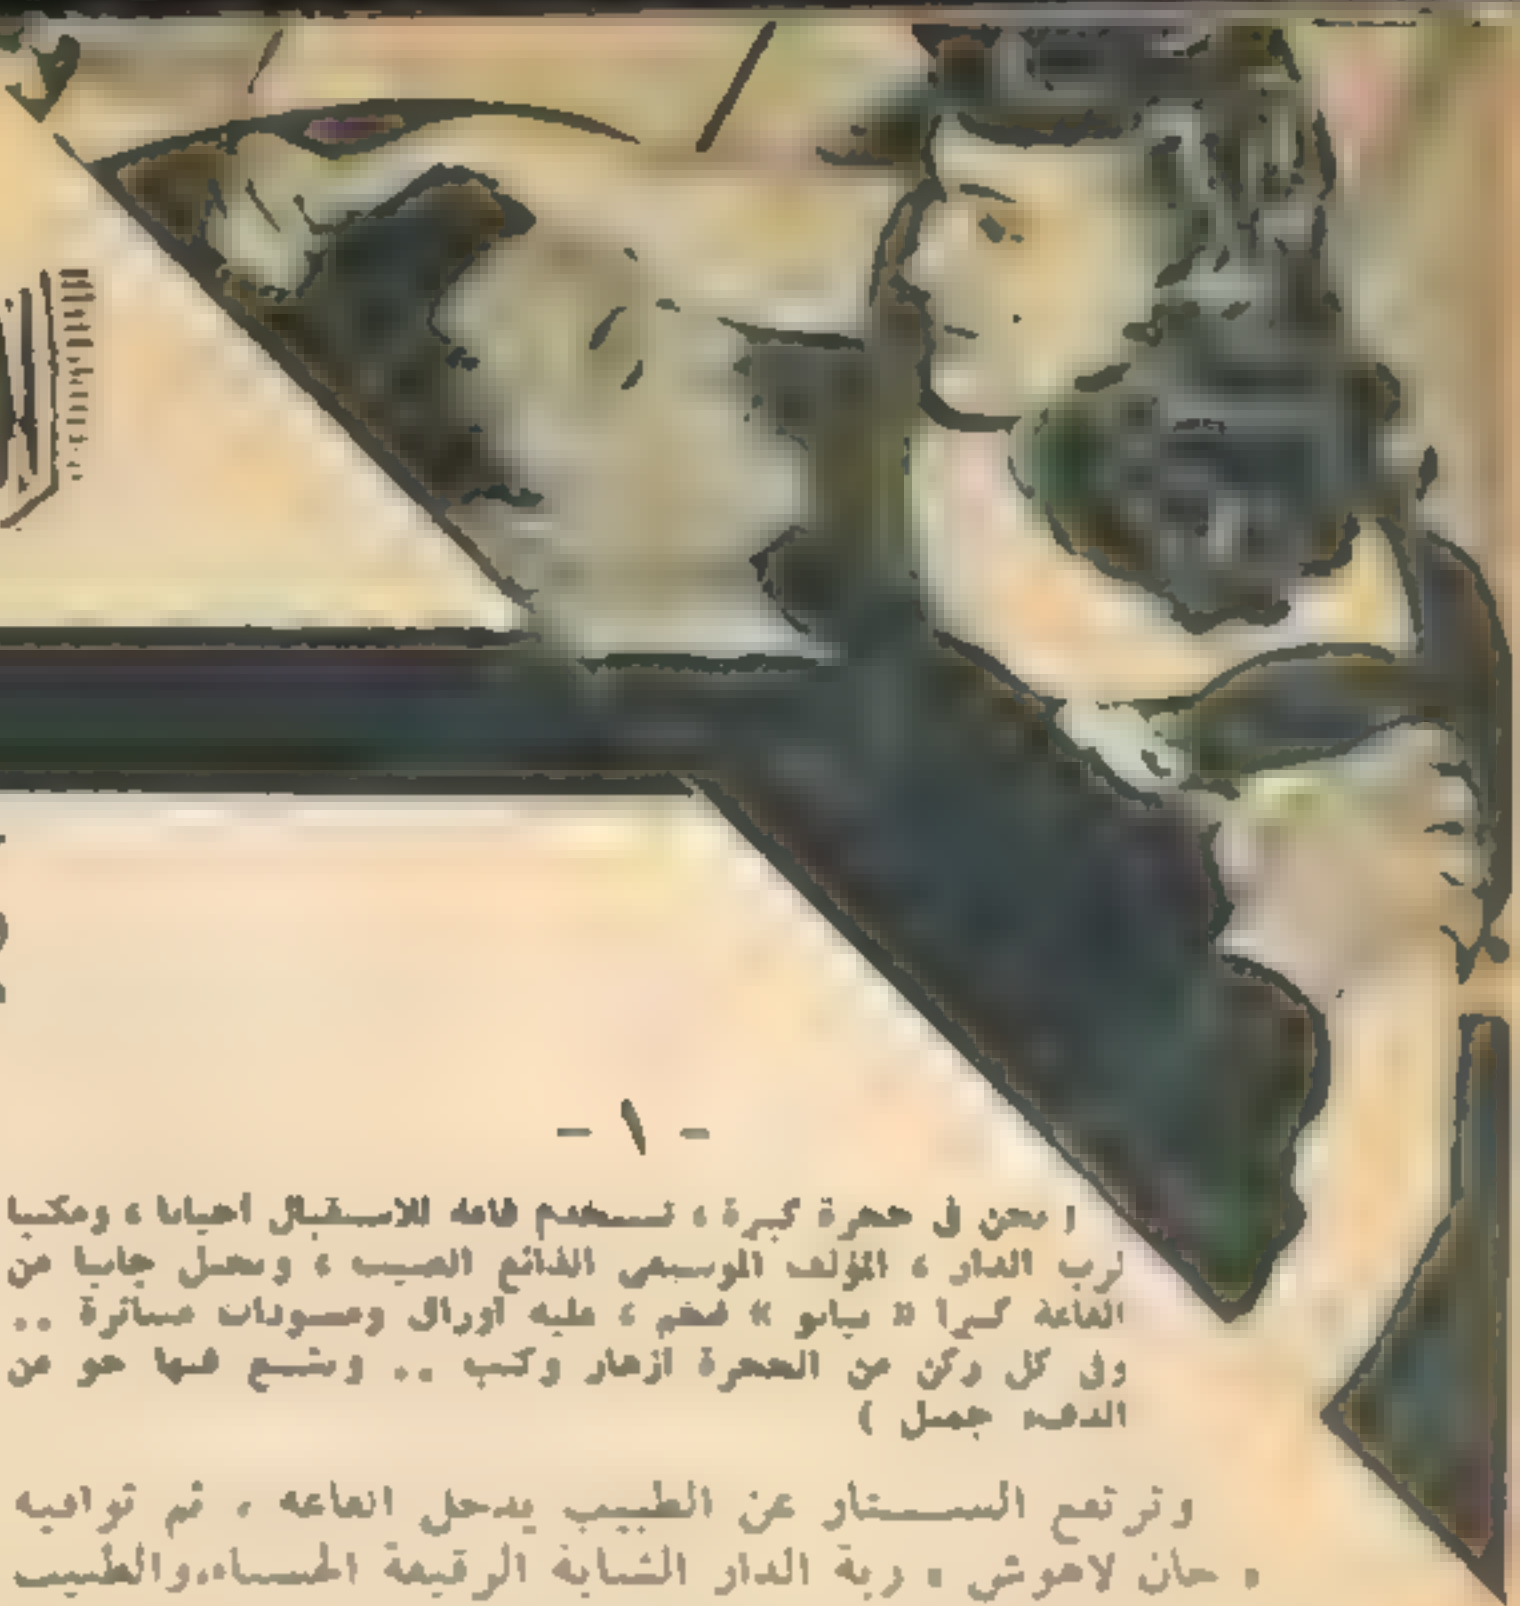 - ١ -
( نحن في حجرة كبيرة ، تستخدم قاعة للاستقبال أحيانا ، ومكتبا
لرب الدار ، المؤلف الموسيقي الذائع الصيت ، ويحتل جانبا من
القاعة كبيرا « بيانو » ضخم ، عليه أوراق ومسودات متناثرة ..
وفي كل ركن من الحجرة أزهار وكتب .. ويشيع فيها جو من
الدفء جميل )
وترتفع الستار عن الطبيب يدخل القاعة ، ثم توافيه
ربة الدار الشابة الرقيقة الحسناء، والطبيب